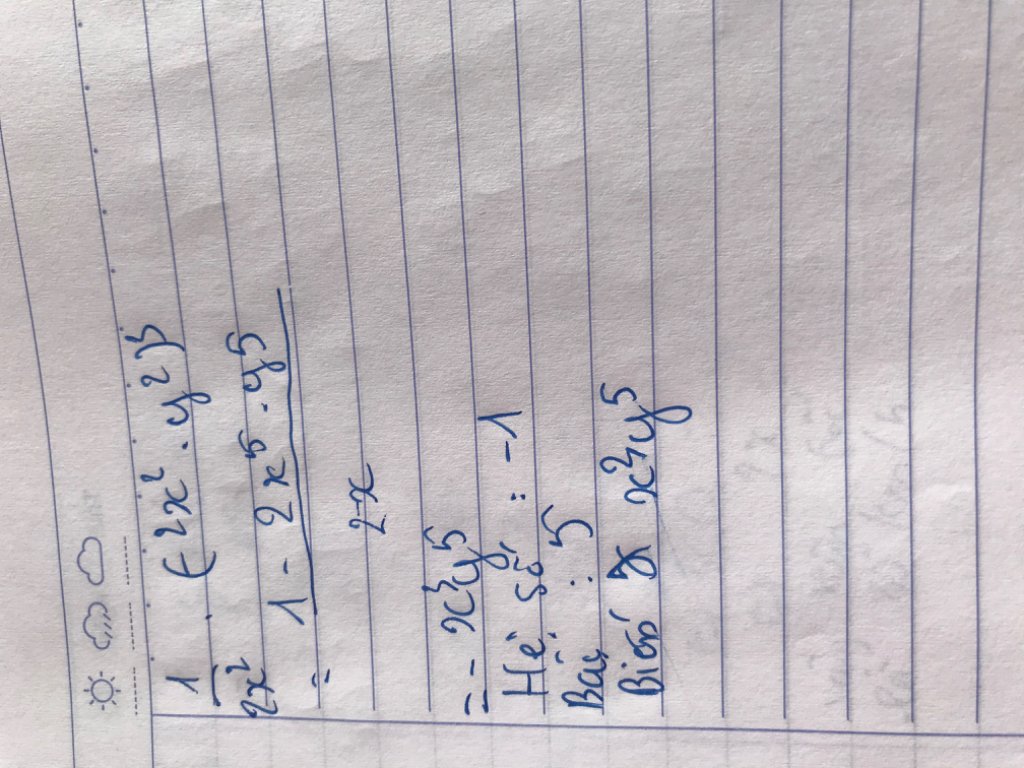 1/2x² . (-2x² . y²)³
= 1 - 2x⁵ . y⁵ / 2x
= - x⁴y⁵
Hệ số : -1
Bậc : 5
Biến x⁴y⁵